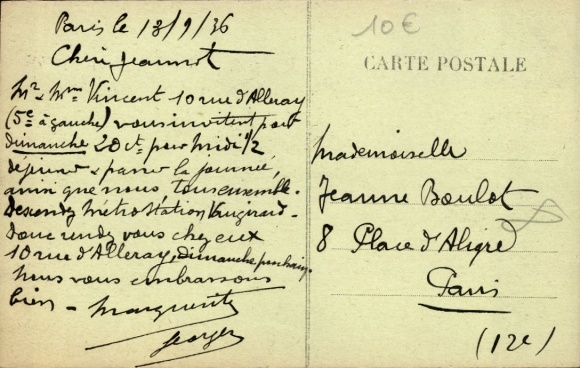 Paris le 13/9/36
Chère Jeannot
Mr & Mme Vincent 10 rue d'Alleray
(5e à gauche) vous invitent pour
dimanche 20 ct. pour midi 1/2
déjeuner & passer la journée,
ainsi que nous tous ensemble.
Descendez métro station Vaugirard -
Donc rendez vous chez eux
10 rue d'Alleray, dimanche prochain.
Nous vous embrassons
bien - Marguerite
Georges
10€
CARTE POSTALE
Mademoiselle
Jeanne Boulot
8 Place d'Aligre
Paris
(12e)